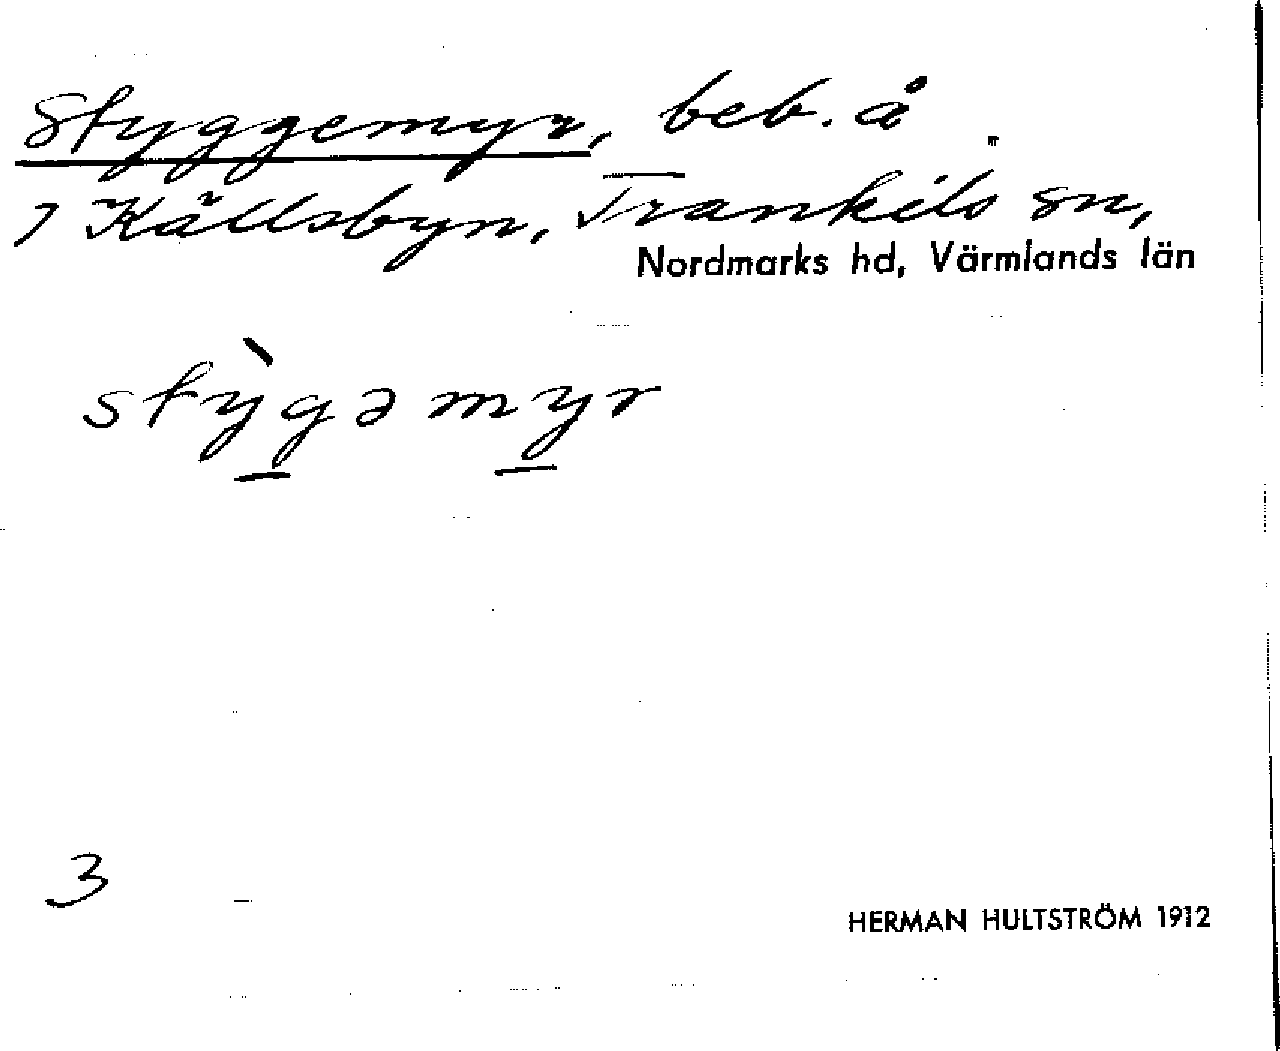 Styggemyr, beb. å
7 Källsbyn, Trankils sn,
Nordmarks hd, Värmlands län
stỳgəmyr
3
HERMAN HULTSTRÖM 1912